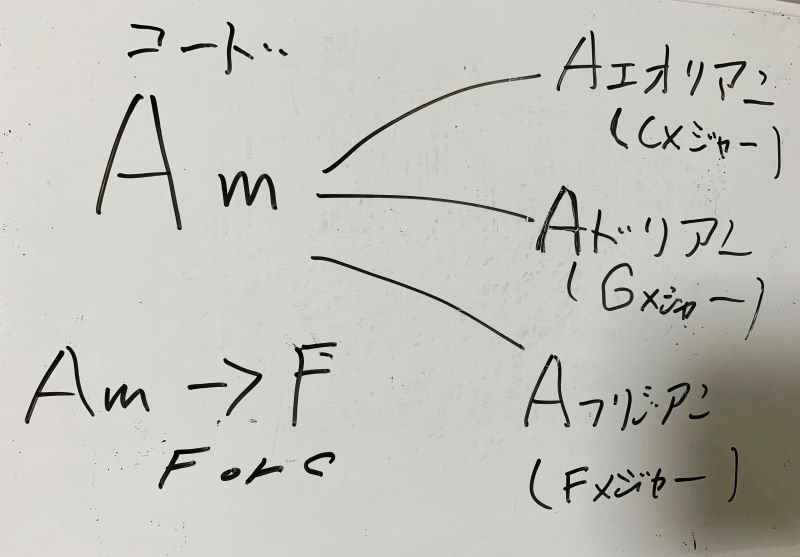 コード‥
Am
Aエオリアン
(Cメジャー)
Aドリアン
(Gメジャー)
Aフリジアン
(Fメジャー)
Am→F
F or C